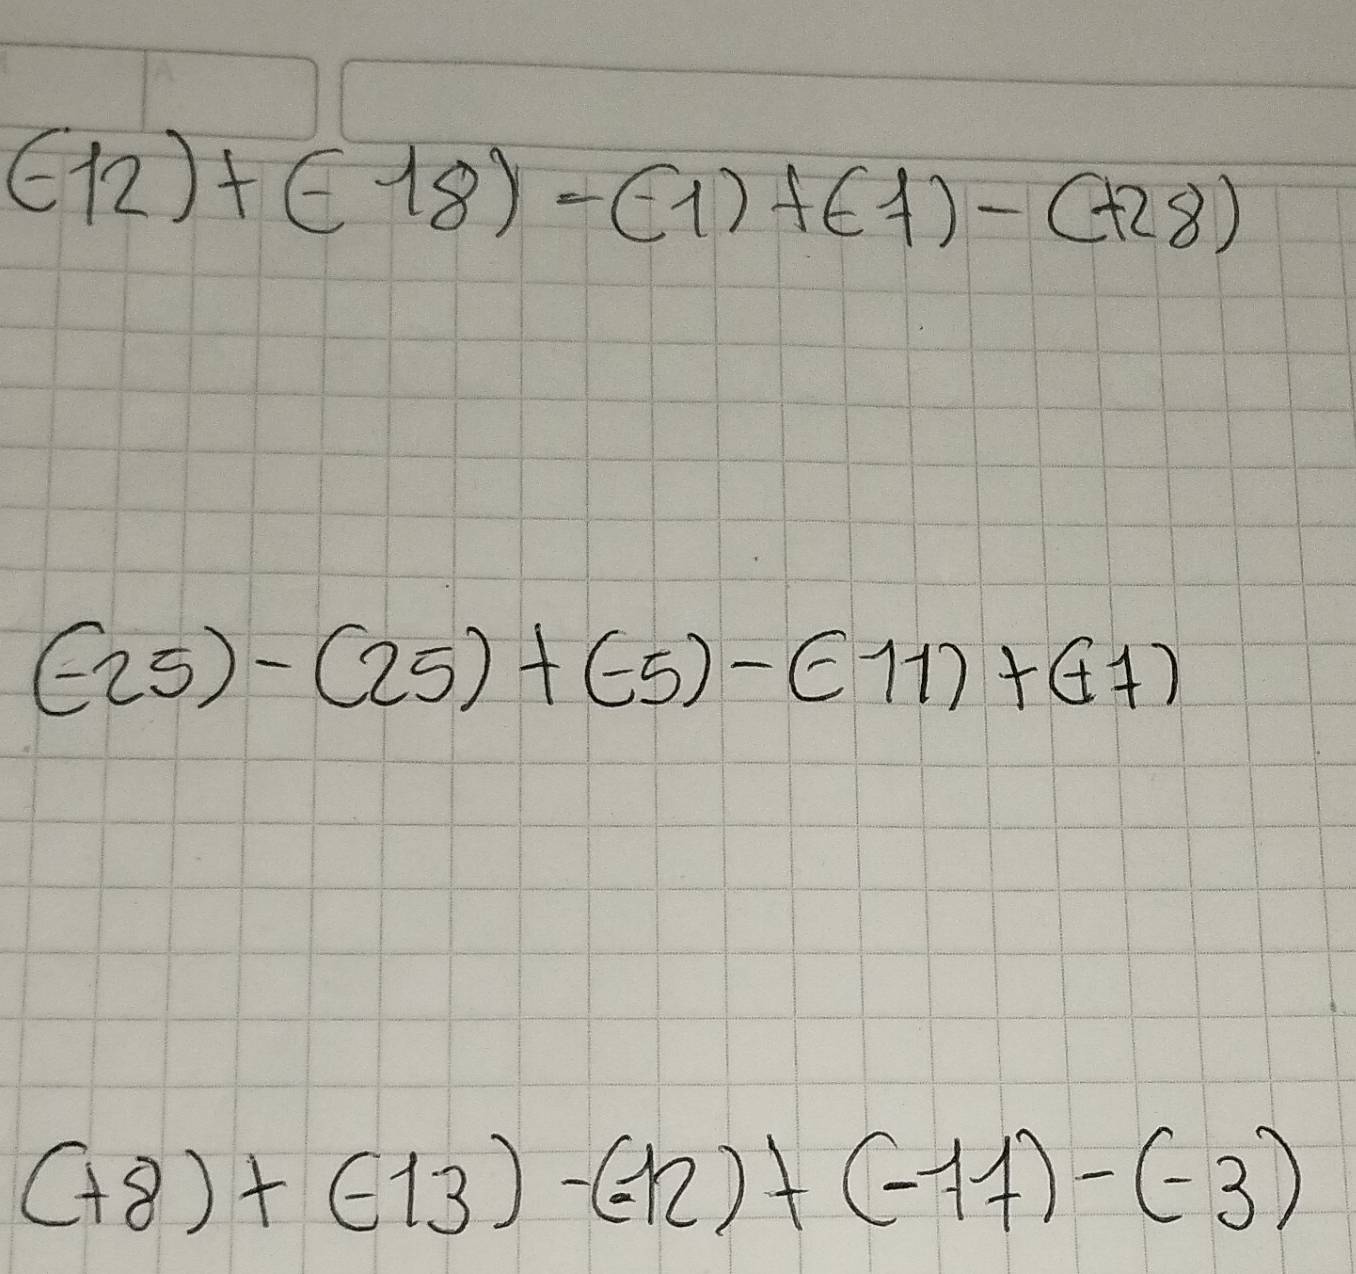 (-12)+(-18)-(-1)+(-7)-(+28)
(-25)-(25)+(-5)-(-11)+(+7)
(+8)+(-13)-(-12)+(-17)-(-3)